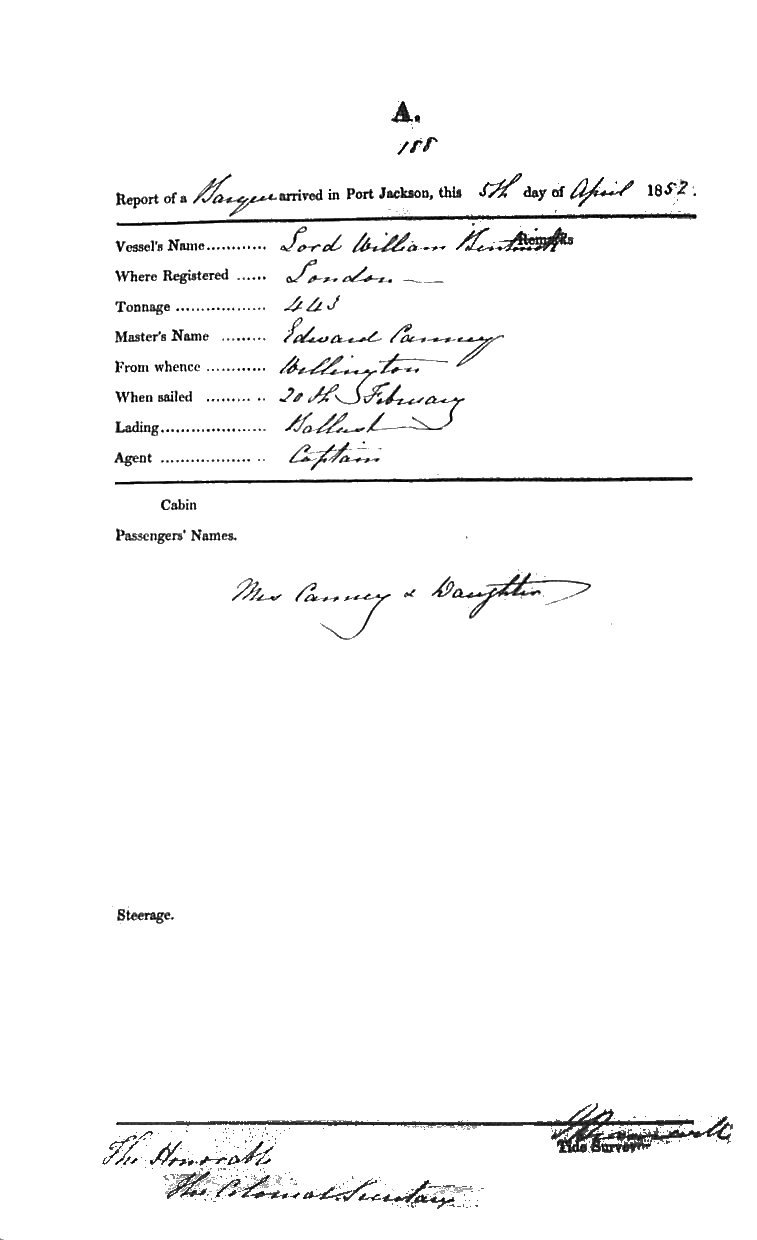 A.
188
Report of a Barque arrived in Port Jackson, this 5th day of April 1852.
Vessel's Name............ Lord William Bentinck Remarks
Where Registered ...... London
Tonnage .................. 443
Master's Name ......... Edward Canney
From whence ............ Wellington
When sailed ......... .. 20th February
Lading..................... Ballast
Agent .................. .. Captain
Cabin
Passengers' Names.
Mrs Canney & Daughter
Steerage.
Tide Surveyor
The Honorable
The Colonial Secretary